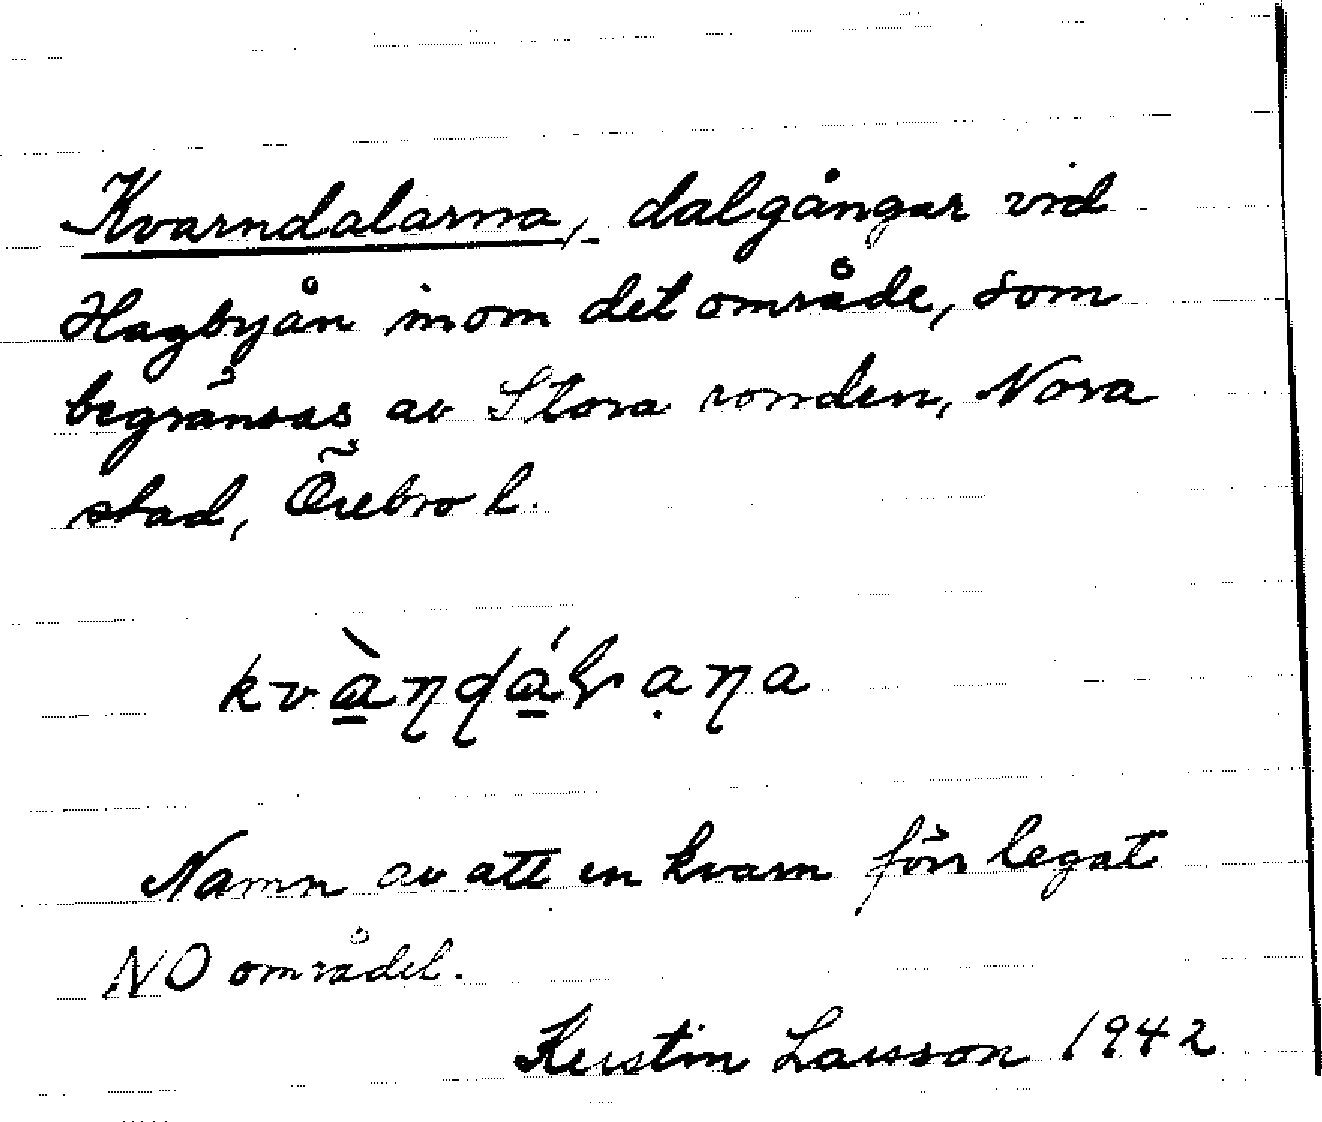 Kvarndalarna, dalgångar vid
Hagbyån inom det område, som
begränsas av Stora ronden, Nora
stad, Örebro l.
Namn av att en kvarn förr legat
NO området.
Kerstin Larsson 1942